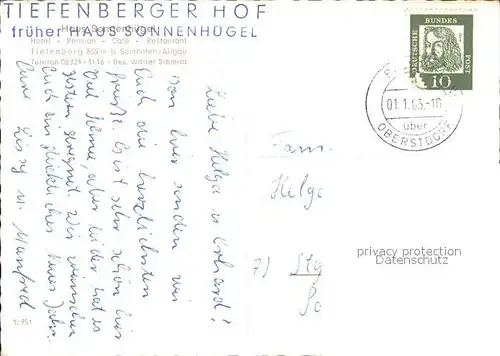 TIEFENBERGER HOF
früher HAUS SONNENHÜGEL
Haus Sonnenhügel
Hotel - Pension - Café - Restaurant
Tiefenberg 855 m b. Sonthofen/Allgäu
Telefon 08321 - 31-16 - Bes. Walter
Liebe Helga u. Erhard!
Von hier senden wir
Euch die herzlichsten
Grüße. Es ist sehr schön hier
viel Schnee, aber leider hat es
gestern geregnet. Wir wünschen
Euch ein glückliches neues Jahr.
Eure Sissy u. Manfred
1r 951
DEUTSCHE BUNDESPOST
10
01.1.63.-18
über
OBERSTDORF
Fam.
Helga
privacy protection
Datenschutz
71 Stg